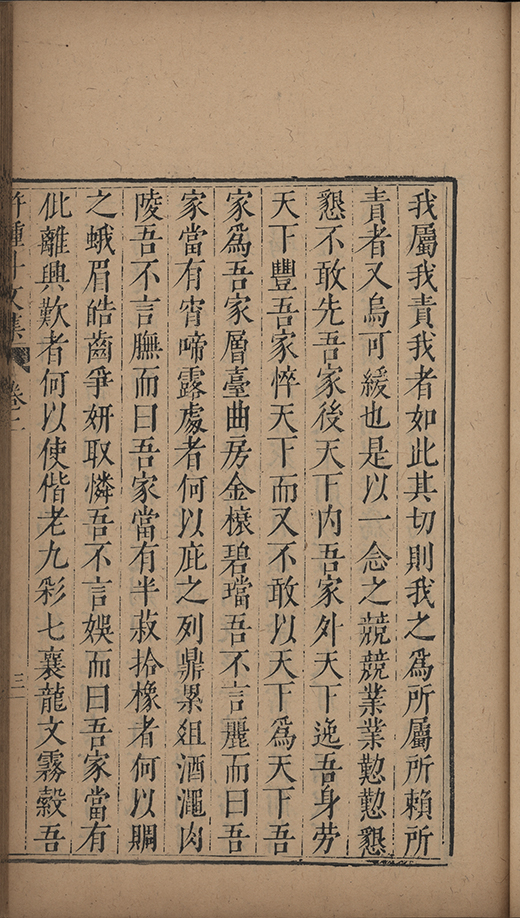 我屬我責我者如此其切則我之爲所屬所賴所
責者又烏可緩也是以一念之兢兢業業懃懃懇
懇不敢先吾家後天下內吾家外天下逸吾身劳
天下豐吾家悴天下而又不敢以天下爲天下吾
家爲吾家層臺曲房金榱碧璫吾不言麗而曰吾
家當有宵啼露處者何以庇之列鼎累俎酒澠肉
陵吾不言膴而曰吾家當有半菽拾橡者何以賙
之蛾眉皓齒爭妍取憐吾不言娛而曰吾家當有
仳離興歎者何以使偕老九彩七襄龍文霧縠吾
許鍾斗文集 卷二 三